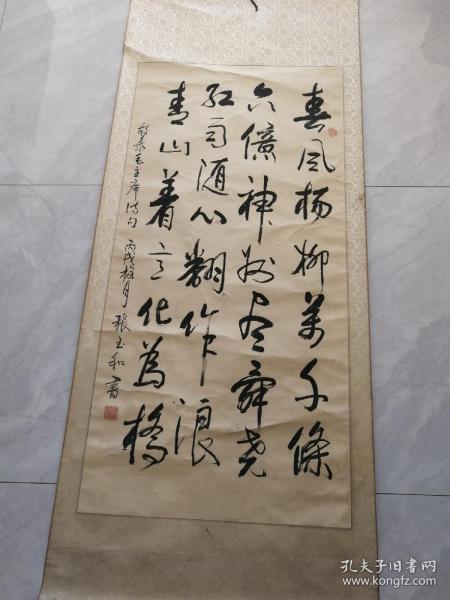 春风杨柳万千條
六億神州尽舜尧
红雨随心翻作浪
青山着意化為橋
敬录毛主席诗句 丙戌桂月 張玉和書
孔夫子旧书网
www.kongfz.com